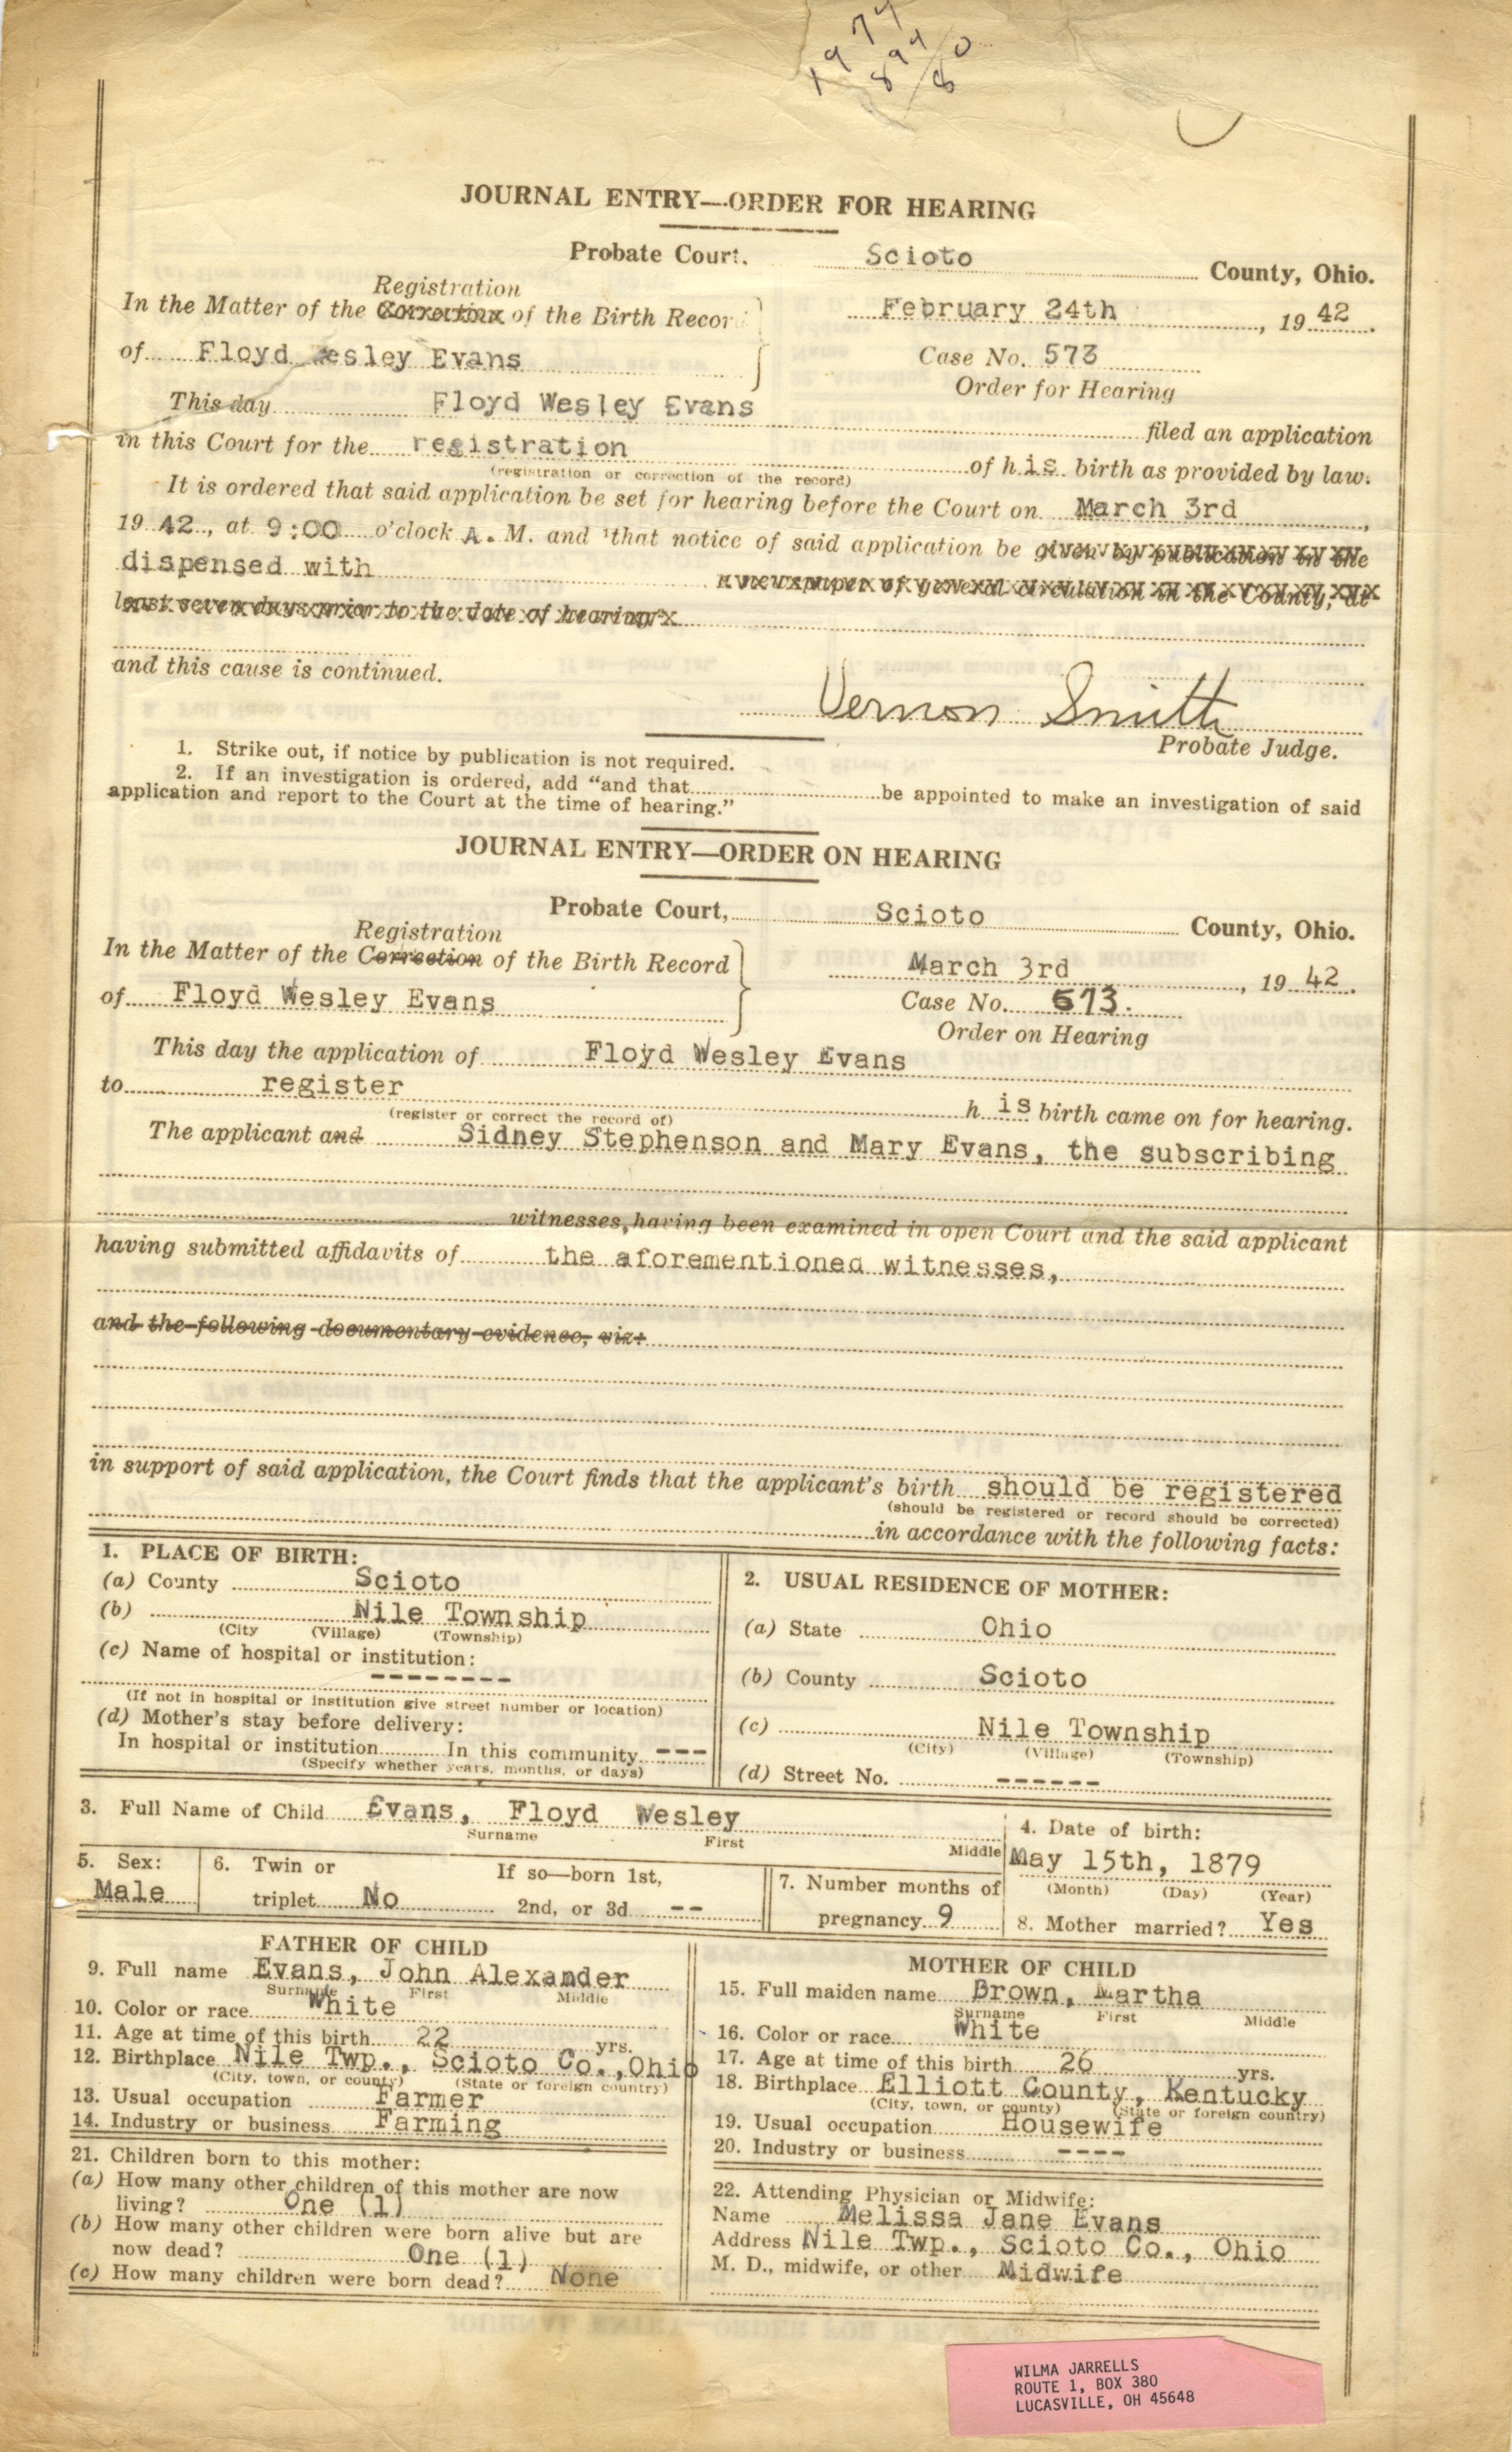 1974
894/80
JOURNAL ENTRY—ORDER FOR HEARING
Probate Court. Scioto County, Ohio.
Registration
In the Matter of the Correction of the Birth Record
February 24th, 1942.
of Floyd Wesley Evans
Case No. 573
Order for Hearing
This day Floyd Wesley Evans filed an application
in this Court for the registration of his birth as provided by law.
(registration or correction of the record)
It is ordered that said application be set for hearing before the Court on March 3rd,
1942, at 9:00 o'clock A. M. and that notice of said application be given by publication in the
dispensed with a newspaper of general circulation in the County, at
least seven days prior to the date of hearing
and this cause is continued.
Vernon Smith
Probate Judge.
1. Strike out, if notice by publication is not required.
2. If an investigation is ordered, add “and that be appointed to make an investigation of said
application and report to the Court at the time of hearing.”
JOURNAL ENTRY—ORDER ON HEARING
Probate Court, Scioto County, Ohio.
Registration
In the Matter of the Correction of the Birth Record
March 3rd, 1942.
of Floyd Wesley Evans
Case No. 573.
Order on Hearing
This day the application of Floyd Wesley Evans
to register his birth came on for hearing.
(register or correct the record of)
The applicant and Sidney Stephenson and Mary Evans, the subscribing
witnesses, having been examined in open Court and the said applicant
having submitted affidavits of the aforementioned witnesses,
and the following documentary evidence, viz:
in support of said application, the Court finds that the applicant's birth should be registered
(should be registered or record should be corrected)
in accordance with the following facts:
1. PLACE OF BIRTH:
(a) County Scioto
(b) Nile Township
(City (Village) (Township)
(c) Name of hospital or institution:
--------
(If not in hospital or institution give street number or location)
(d) Mother's stay before delivery:
In hospital or institution In this community ---
(Specify whether years, months, or days)
2. USUAL RESIDENCE OF MOTHER:
(a) State Ohio
(b) County Scioto
(c) Nile Township
(City) (Village) (Township)
(d) Street No. ------
3. Full Name of Child Evans, Floyd Wesley
Surname First Middle
4. Date of birth:
May 15th, 1879
(Month) (Day) (Year)
5. Sex:
Male
6. Twin or
triplet No
If so—born 1st,
2nd, or 3d --
7. Number months of
pregnancy 9
8. Mother married? Yes
FATHER OF CHILD
9. Full name Evans, John Alexander
Surname First Middle
10. Color or race White
11. Age at time of this birth 22 yrs.
12. Birthplace Nile Twp., Scioto Co., Ohio
(City, town, or county) (State or foreign country)
13. Usual occupation Farmer
14. Industry or business Farming
MOTHER OF CHILD
15. Full maiden name Brown, Martha
Surname First Middle
16. Color or race White
17. Age at time of this birth 26 yrs.
18. Birthplace Elliott County, Kentucky
(City, town, or county) (State or foreign country)
19. Usual occupation Housewife
20. Industry or business ----
21. Children born to this mother:
(a) How many other children of this mother are now
living? One (1)
(b) How many other children were born alive but are
now dead? One (1)
(c) How many children were born dead? None
22. Attending Physician or Midwife:
Name Melissa Jane Evans
Address Nile Twp., Scioto Co., Ohio
M. D., midwife, or other Midwife
WILMA JARRELLS
ROUTE 1, BOX 380
LUCASVILLE, OH 45648